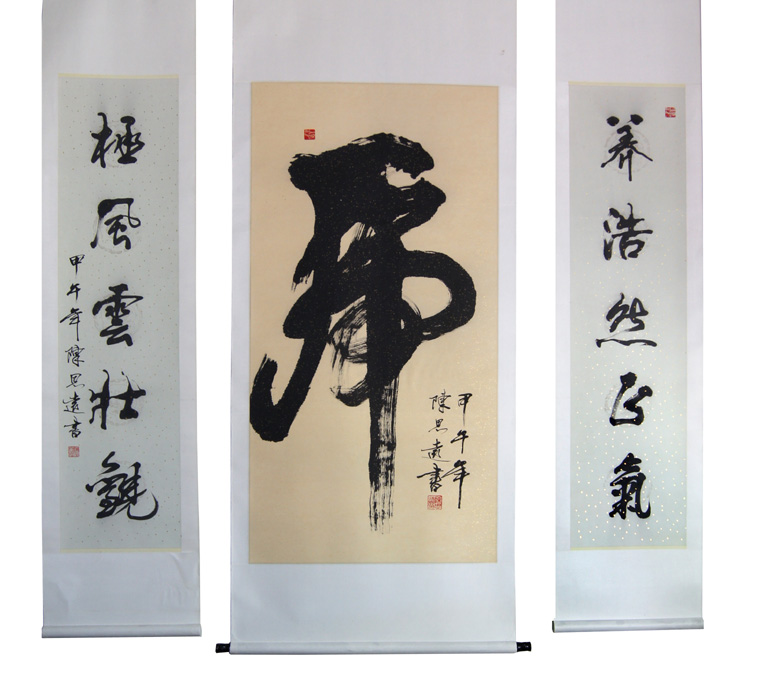 养浩然正氣
虎
甲午年
陳思遠書
極風雲壯觀
甲午年陳思遠書